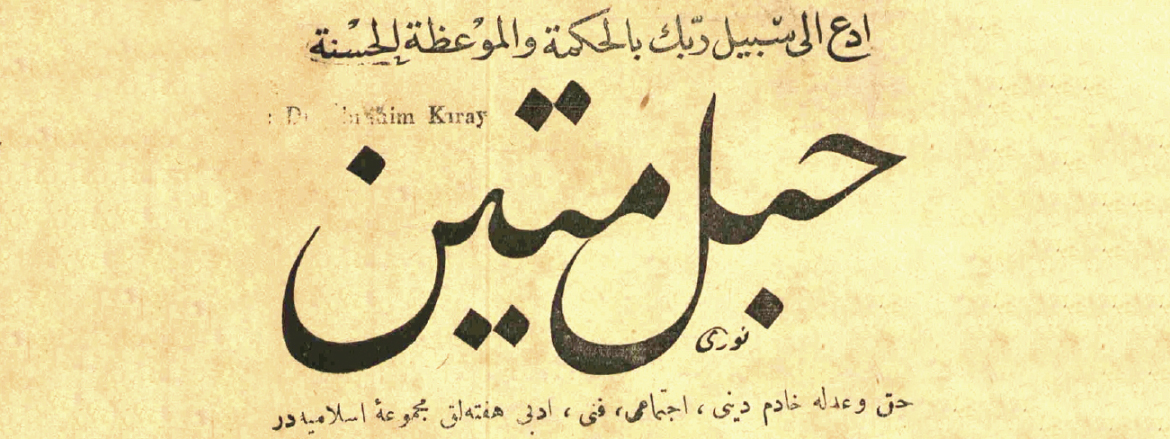 ادع الى سبيل ربّك بالحكمة والموعظة الحسنة
Kıray
حبل متين
نوری
حق وعدله خادم دينی ، اجتماعی، فنی ، ادبی هفته‌لق مجموعهٔ اسلاميه‌در